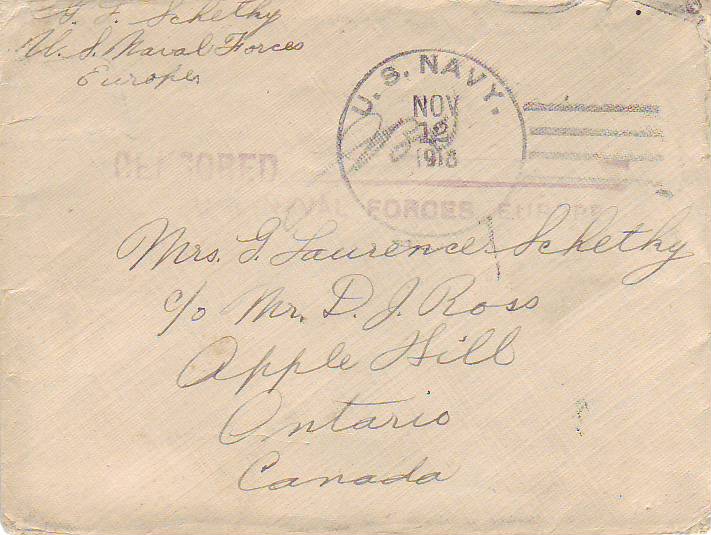 G. L. Schethy
U. S. Naval Forces
Europe
U. S. NAVY.
NOV
12
1918
CENSORED
NAVAL FORCES EUROPE
Mrs. G. Laurence Schethy
c/o Mr. D. J. Ross
Apple Hill
Ontario
Canada